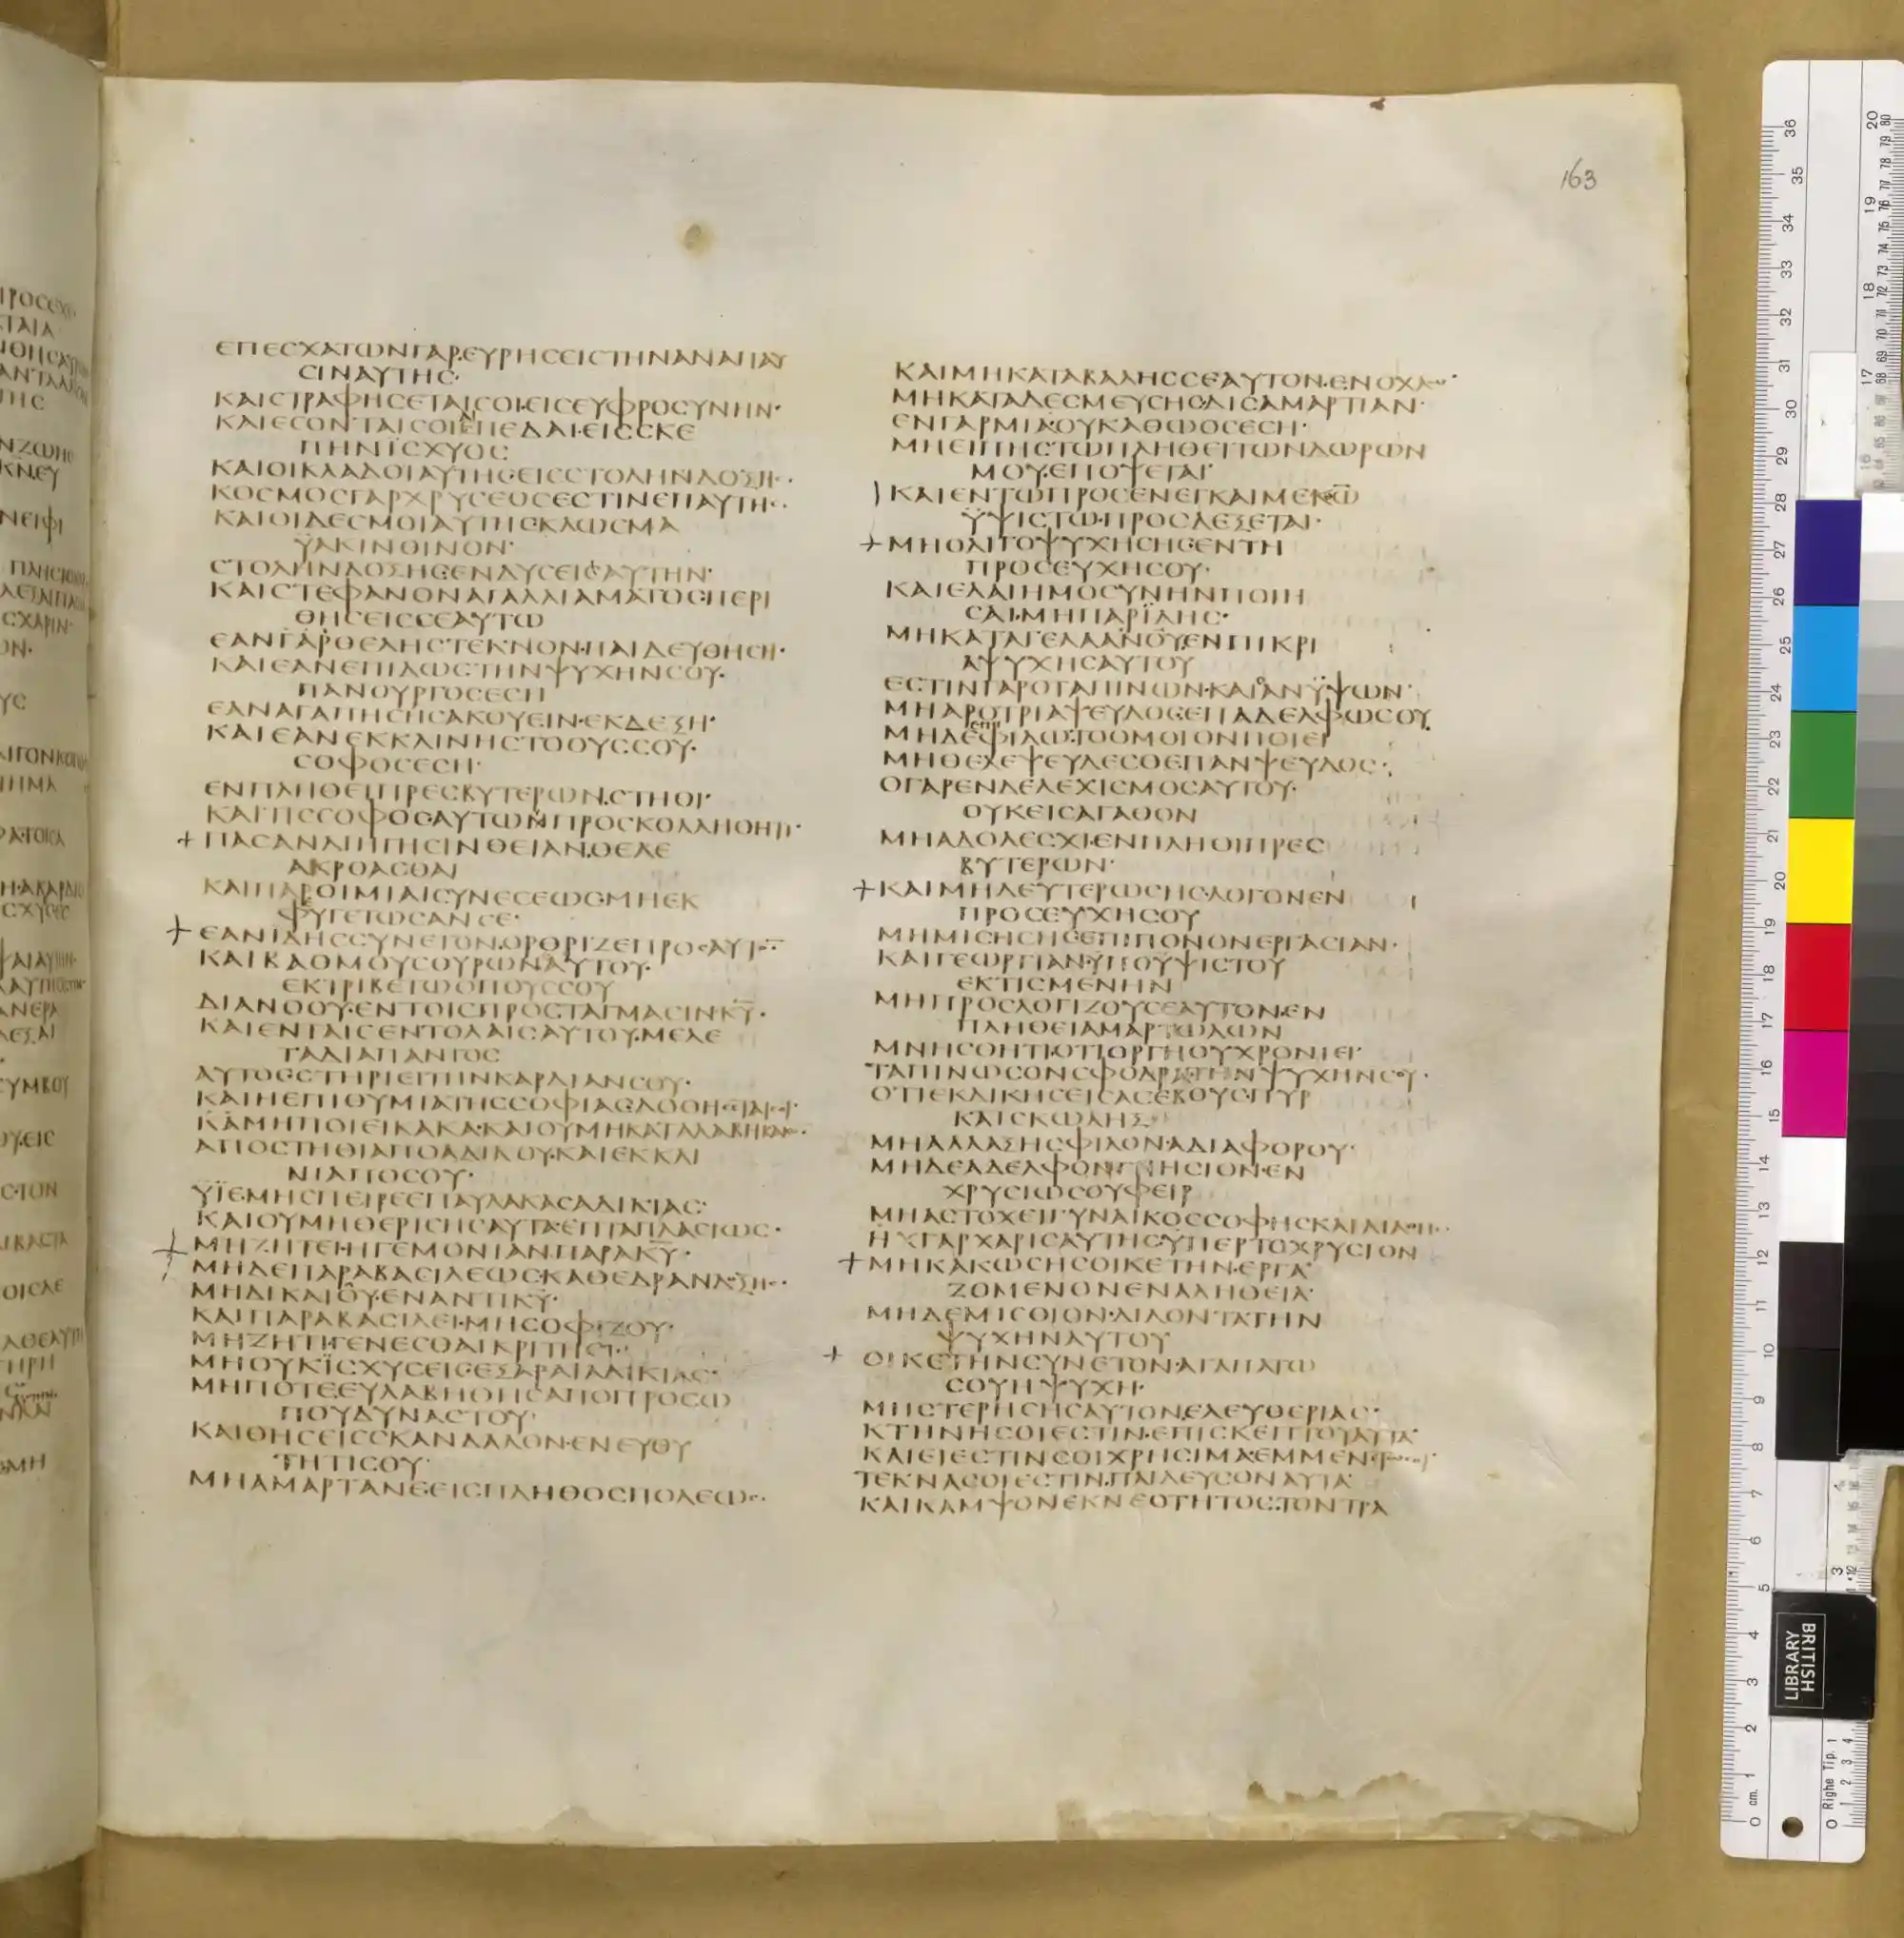 ΕΠΕΣΧΑΤΩΝΓΑΡ·ΕΥΡΗΣΕΙΣΤΗΝΑΝΑΠΑΥ
ΣΙΝΑΥΤΗΣ·
ΚΑΙΣΤΡΑΦΗΣΕΤΑΙΣΟΙ·ΕΙΣΕΥΦΡΟΣΥΝΗΝ·
ΚΑΙΕΣΟΝΤΑΙΣΟΙΕΠΕΔΑΙ·ΕΙΣΣΚΕ
ΠΗΝΪΣΧΥΟΣ
ΚΑΙΟΙΚΛΑΔΟΙΑΥΤΗΣ·ΕΙΣΣΤΟΛΗΝΔΟΞΗΣ·
ΚΟΣΜΟΣΓΑΡΧΡΥΣΕΟΣΕΣΤΙΝΕΠΑΥΤΗΣ·
ΚΑΙΟΙΔΕΣΜΟΙΑΥΤΗΣ·ΚΛΩΣΜΑ
ΫΑΚΙΝΘΙΝΟΝ·
ΣΤΟΛΗΝΔΟΞΗΣΕΝΔΥΣΕΙΣΑΥΤΗΝ·
ΚΑΙΣΤΕΦΑΝΟΝΑΓΑΛΛΙΑΜΑΤΟΣ·ΠΕΡΙ
ΘΗΣΕΙΣΣΕΑΥΤΩ
ΕΑΝΓΑΡΘΕΛΗΣΤΕΚΝΟΝ·ΠΑΙΔΕΥΘΗΣΗ·
ΚΑΙΕΑΝΕΠΙΔΩΣΤΗΝΨΥΧΗΝΣΟΥ·
ΠΑΝΟΥΡΓΟΣΕΣΗ
ΕΑΝΑΓΑΠΗΣΗΣΑΚΟΥΕΙΝ·ΕΚΔΕΞΗ·
ΚΑΙΕΑΝΕΚΚΛΙΝΗΣΤΟΟΥΣΣΟΥ·
ΣΟΦΟΣΕΣΗ·
ΕΝΠΛΗΘΕΙΠΡΕΣΒΥΤΕΡΩΝ·ΣΤΗΘΙ·
ΚΑΙΤΙΣΣΟΦΟΣ·ΑΥΤΩΝΠΡΟΣΚΟΛΛΗΘΗΤΙ·
ΠΑΣΑΝΔΙΗΓΗΣΙΝΘΕΙΑΝ·ΘΕΛΕ
ΑΚΡΟΑΣΘΑΙ
ΚΑΙΠΑΡΟΙΜΙΑΙΣΥΝΕΣΕΩΣΜΗΕΚ
ΦΥΓΕΤΩΣΑΝΣΕ·
ΕΑΝΙΔΗΣΣΥΝΕΤΟΝ·ΟΡΘΡΙΖΕΠΡΟΣΑΥΤΟΝ
ΚΑΙΒΑΘΜΟΥΣΘΥΡΩΝΑΥΤΟΥ·
ΕΚΤΡΙΒΕΤΩΟΠΟΥΣΣΟΥ
ΔΙΑΝΟΟΥ·ΕΝΤΟΙΣΠΡΟΣΤΑΓΜΑΣΙΝΚΥ·
ΚΑΙΕΝΤΑΙΣΕΝΤΟΛΑΙΣΑΥΤΟΥ·ΜΕΛΕ
ΤΑΔΙΑΠΑΝΤΟΣ
ΑΥΤΟΣΣΤΗΡΙΕΙΤΗΝΚΑΡΔΙΑΝΣΟΥ·
ΚΑΙΗΕΠΙΘΥΜΙΑΤΗΣΣΟΦΙΑΣΔΟΘΗΣΕΤΑΙΣΟΙ·
ΚΑΙΜΗΠΟΙΕΙΚΑΚΑ·ΚΑΙΟΥΜΗΚΑΤΑΛΑΒΗΚΑΚΟΝ·
ΑΠΟΣΤΗΘΙΑΠΟΑΔΙΚΟΥ·ΚΑΙΕΚΚΛΙ
ΝΙΑΠΟΣΟΥ·
ΥΪΕΜΗΣΠΕΙΡΕΕΠΑΥΛΑΚΑΣΑΔΙΚΙΑΣ·
ΚΑΙΟΥΜΗΘΕΡΙΣΗΣΑΥΤΑ·ΕΠΤΑΠΛΑΣΙΩΣ·
ΜΗΖΗΤΕΙΗΓΕΜΟΝΙΑΝ·ΠΑΡΑΚΥ·
ΜΗΔΕΠΑΡΑΒΑΣΙΛΕΩΣ·ΚΑΘΕΔΡΑΝΔΟΞΗΣ·
ΜΗΔΙΚΑΙΟΥ·ΕΝΑΝΤΙΚΥ·
ΚΑΙΠΑΡΑΒΑΣΙΛΕΙ·ΜΗΣΟΦΙΖΟΥ·
ΜΗΖΗΤΙ·ΓΕΝΕΣΘΑΙΚΡΙΤΗΣ·
ΜΗΟΥΚΪΣΧΥΣΕΙΣΕΞΑΡΑΙΑΔΙΚΙΑΣ·
ΜΗΠΟΤΕ·ΕΥΛΑΒΗΘΗΣΑΠΟΠΡΟΣΩ
ΠΟΥΔΥΝΑΣΤΟΥ·
ΚΑΙΘΗΣΕΙΣΣΚΑΝΔΑΛΟΝ·ΕΝΕΥΘΥ
ΤΗΤΙΣΟΥ·
ΜΗΑΜΑΡΤΑΝΕ·ΕΙΣΠΛΗΘΟΣΠΟΛΕΩΣ·
ΚΑΙΜΗΚΑΤΑΒΑΛΗΣΣΕΑΥΤΟΝ·ΕΝΟΧΛΩ·
ΜΗΚΑΤΑΔΕΣΜΕΥΣΗΣ·ΔΙΣΑΜΑΡΤΙΑΝ·
ΕΝΓΑΡΜΙΑ·ΟΥΚΑΘΩΟΣΕΣΗ·
ΜΗΕΙΠΗΣ·ΤΩΠΛΗΘΕΙΤΩΝΔΩΡΩΝ
ΜΟΥ·ΕΠΟΨΕΤΑΙ·
ΚΑΙΕΝΤΩΠΡΟΣΕΝΕΓΚΑΙΜΕΚΩ
ΫΨΙΣΤΩ·ΠΡΟΣΔΕΞΕΤΑΙ·
ΜΗΟΛΙΓΟΨΥΧΗΣΗΣΕΝΤΗ
ΠΡΟΣΕΥΧΗΣΟΥ·
ΚΑΙΕΛΑΙΗΜΟΣΥΝΗΝΠΟΙΗ
ΣΑΙ·ΜΗΠΑΡΪΔΗΣ·
ΜΗΚΑΤΑΓΕΛΑΑΝΟΥ·ΕΝΠΙΚΡΙ
ΑΨΥΧΗΣΑΥΤΟΥ
ΕΣΤΙΝΓΑΡΟΤΑΠΙΝΩΝ·ΚΑΙΟΑΝΫΨΩΝ·
ΜΗΑΡΟΤΡΙΑΨΕΥΔΟΣΕΠΑΔΕΛΦΩΣΟΥ
ΜΗΔΕΦΙΛΩ·ΤΟΟΜΟΙΟΝΠΟΙΕΙ
ΜΗΘΕΛΕΨΕΥΔΕΣΘΕΠΑΝΨΕΥΔΟΣ·
ΟΓΑΡΕΝΔΕΛΕΧΙΣΜΟΣΑΥΤΟΥ·
ΟΥΚΕΙΣΑΓΑΘΟΝ
ΜΗΑΔΟΛΕΣΧΙΕΝΠΛΗΘΙΠΡΕΣ
ΒΥΤΕΡΩΝ·
ΚΑΙΜΗΔΕΥΤΕΡΩΣΗΣ·ΛΟΓΟΝΕΝ
ΠΡΟΣΕΥΧΗΣΟΥ
ΜΗΜΙΣΗΣΗΣΕΠΙΠΟΝΟΝΕΡΓΑΣΙΑΝ·
ΚΑΙΓΕΩΡΓΙΑΝ·ΥΠΟΥΨΙΣΤΟΥ
ΕΚΤΙΣΜΕΝΗΝ
ΜΗΠΡΟΣΛΟΓΙΖΟΥΣΕΑΥΤΟΝ·ΕΝ
ΠΛΗΘΕΙΑΜΑΡΤΩΛΩΝ
ΜΝΗΣΘΗΤΙ·ΟΤΙΟΡΓΗΟΥΧΡΟΝΙΕΙ·
ΤΑΠΙΝΩΣΟΝΣΦΟΔΡΑ·ΤΗΝΨΥΧΗΝΣΟΥ·
ΟΤΙΕΚΔΙΚΗΣΕΙΣΑΣΕΒΟΥΣ·ΠΥΡ
ΚΑΙΣΚΩΛΗΞ·
ΜΗΑΛΛΑΞΗΣΦΙΛΟΝ·ΑΔΙΑΦΟΡΟΥ·
ΜΗΔΕΑΔΕΛΦΟΝΓΝΗΣΙΟΝ·ΕΝ
ΧΡΥΣΙΩΣΟΥΦΕΙΡ
ΜΗΑΣΤΟΧΕΙΓΥΝΑΙΚΟΣΣΟΦΗΣΚΑΙΑΓΑΘΗΣ·
ΗΓΑΡΧΑΡΙΣΑΥΤΗΣΥΠΕΡΤΟΧΡΥΣΙΟΝ
ΜΗΚΑΚΩΣΗΣΟΙΚΕΤΗΝ·ΕΡΓΑ
ΖΟΜΕΝΟΝΕΝΑΛΗΘΕΙΑ·
ΜΗΔΕΜΙΣΘΙΟΝ·ΔΙΔΟΝΤΑΤΗΝ
ΨΥΧΗΝΑΥΤΟΥ
ΟΙΚΕΤΗΝΣΥΝΕΤΟΝ·ΑΓΑΠΑΤΩ
ΣΟΥΗΨΥΧΗ·
ΜΗΣΤΕΡΗΣΗΣΑΥΤΟΝ·ΕΛΕΥΘΕΡΙΑΣ·
ΚΤΗΝΗΣΟΙΕΣΤΙΝ·ΕΠΙΣΚΕΠΤΟΥΑΥΤΑ·
ΚΑΙΕΙΕΣΤΙΝΣΟΙΧΡΗΣΙΜΑ·ΕΜΜΕΝ
ΤΕΚΝΑΣΟΙΕΣΤΙΝ·ΠΑΙΔΕΥΣΟΝΑΥΤΑ·
ΚΑΙΚΑΜΨΟΝΕΚΝΕΟΤΗΤΟΣ·ΤΟΝΤΡΑ
163